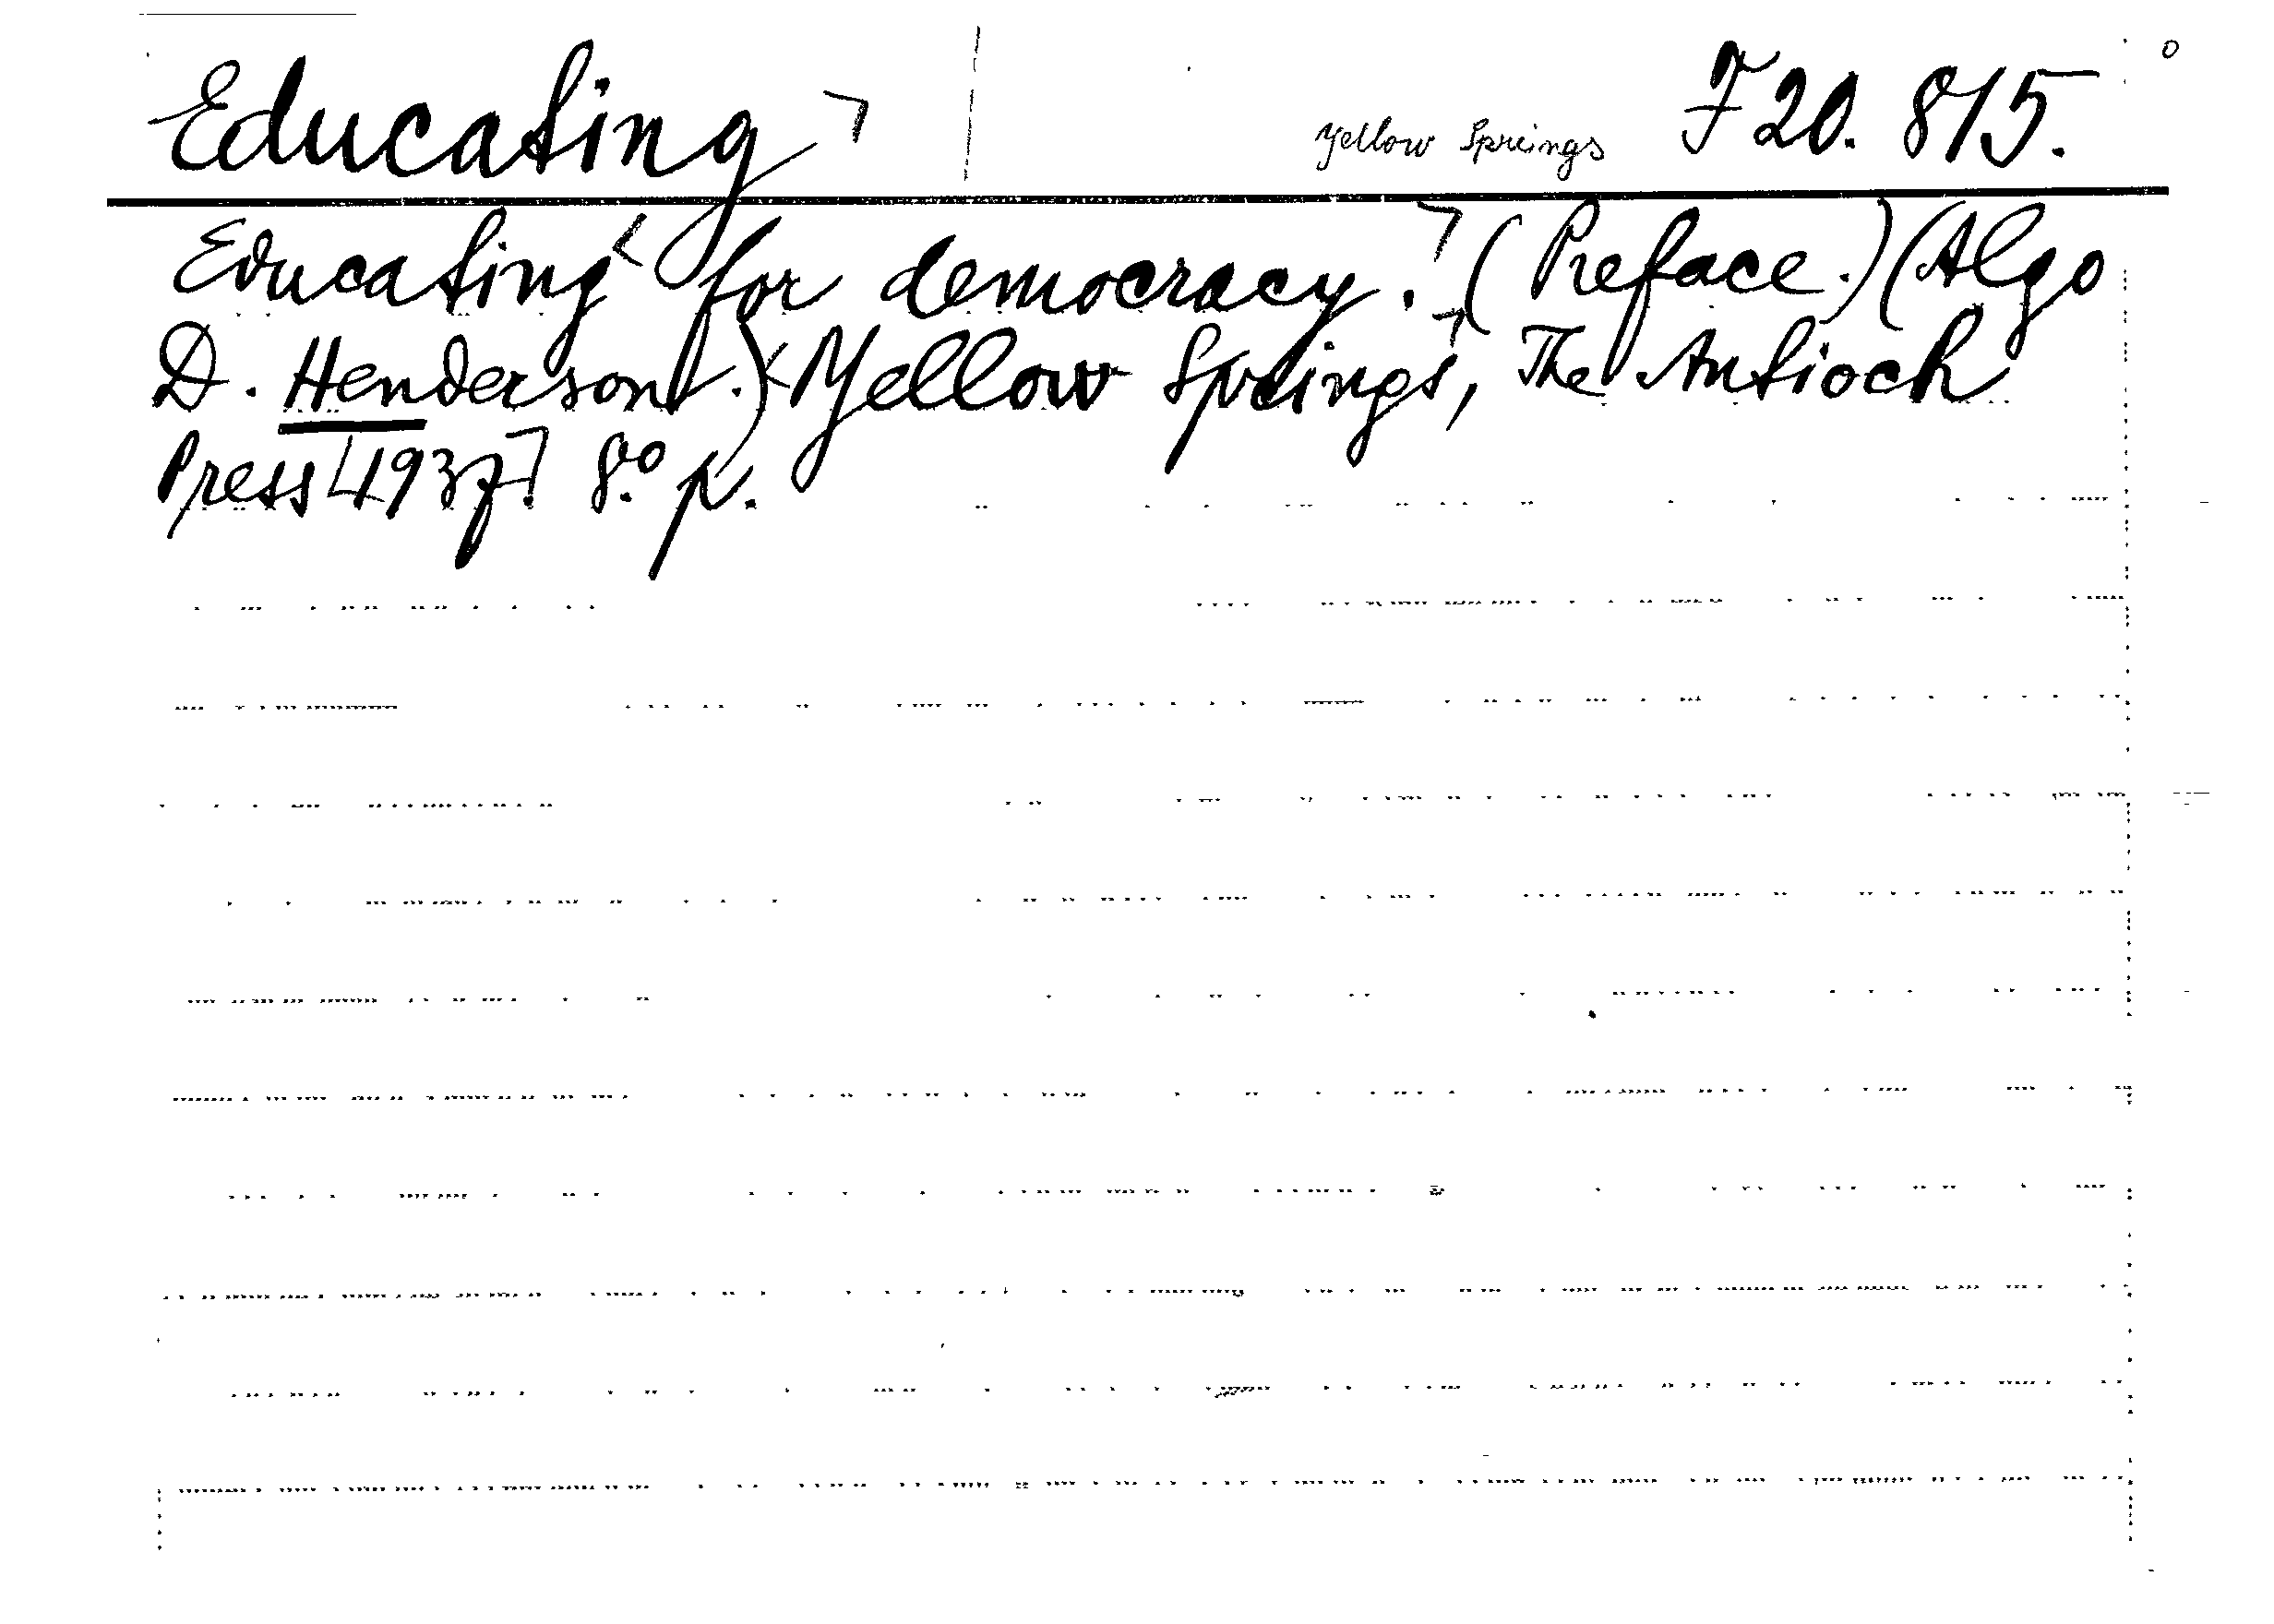 Educating Yellow Springs F 20. 815.
Educating for democracy. (Preface.) (Algo
D. Henderson.) Yellow Springs, The Antioch
Press [1937]. 8° p.